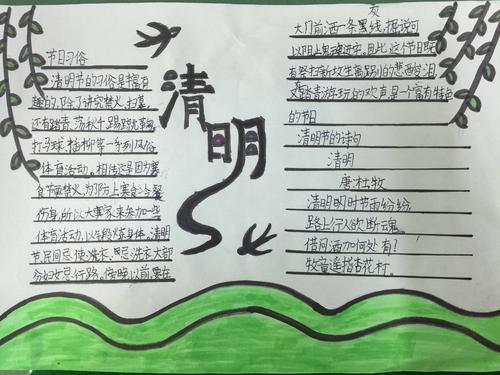 节日习俗
清明节的习俗是富有
趣的,除了讲究禁火、扫墓
还有踏青、荡秋千、踢蹴鞠
打马球、插柳等一系列风俗
体育活动。相传这是因为
食节要禁火,为了防止寒食冷餐
伤身,所以大家来参加一些
体育活动,以锻炼身体。清明
节民间忌使洗衣,大部
分妇女忌行路。傍晚以前,要在
清明
灰
大门前洒一条黑线,据说可
以阻止鬼魂进宅,因此,这个节日既
有祭扫新坟生离死别的悲酸泪
又踏青游玩的欢声,是一个富有特色
的节日
清明节的诗句
清明
唐·杜牧
清明时节雨纷纷
路上行人欲断魂。
借问酒家何处有?
牧童遥指杏花村。